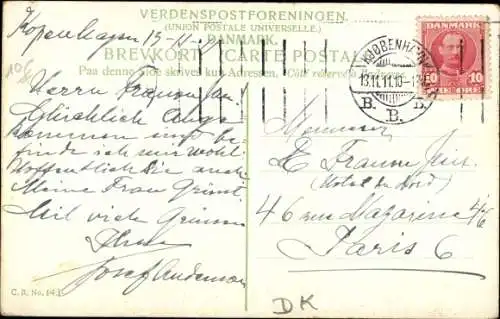 VERDENSPOSTFORENINGEN.
(UNION POSTALE UNIVERSELLE.)
DANMARK.
BREVKORT (CARTE POSTALE)
Paa denne Side skrives kun Adressen. (Côté réservé
Kopenhagen 13-11-
Herrn
Glücklich ange
kommen und be
finde ich mir wohl
Hoffentlich Sie auch
Meine Frau Grüsst
Mit viele Grüsse
Ihr
Josef Andersen
C. R. No. 143
KJØBENHAVN
13.11.11.10-1
B. B. B.
DANMARK
10 10
ØRE
Monsieur
E
(Hotel du Nord)
46 rue Mazarine 46
Paris 6
DK